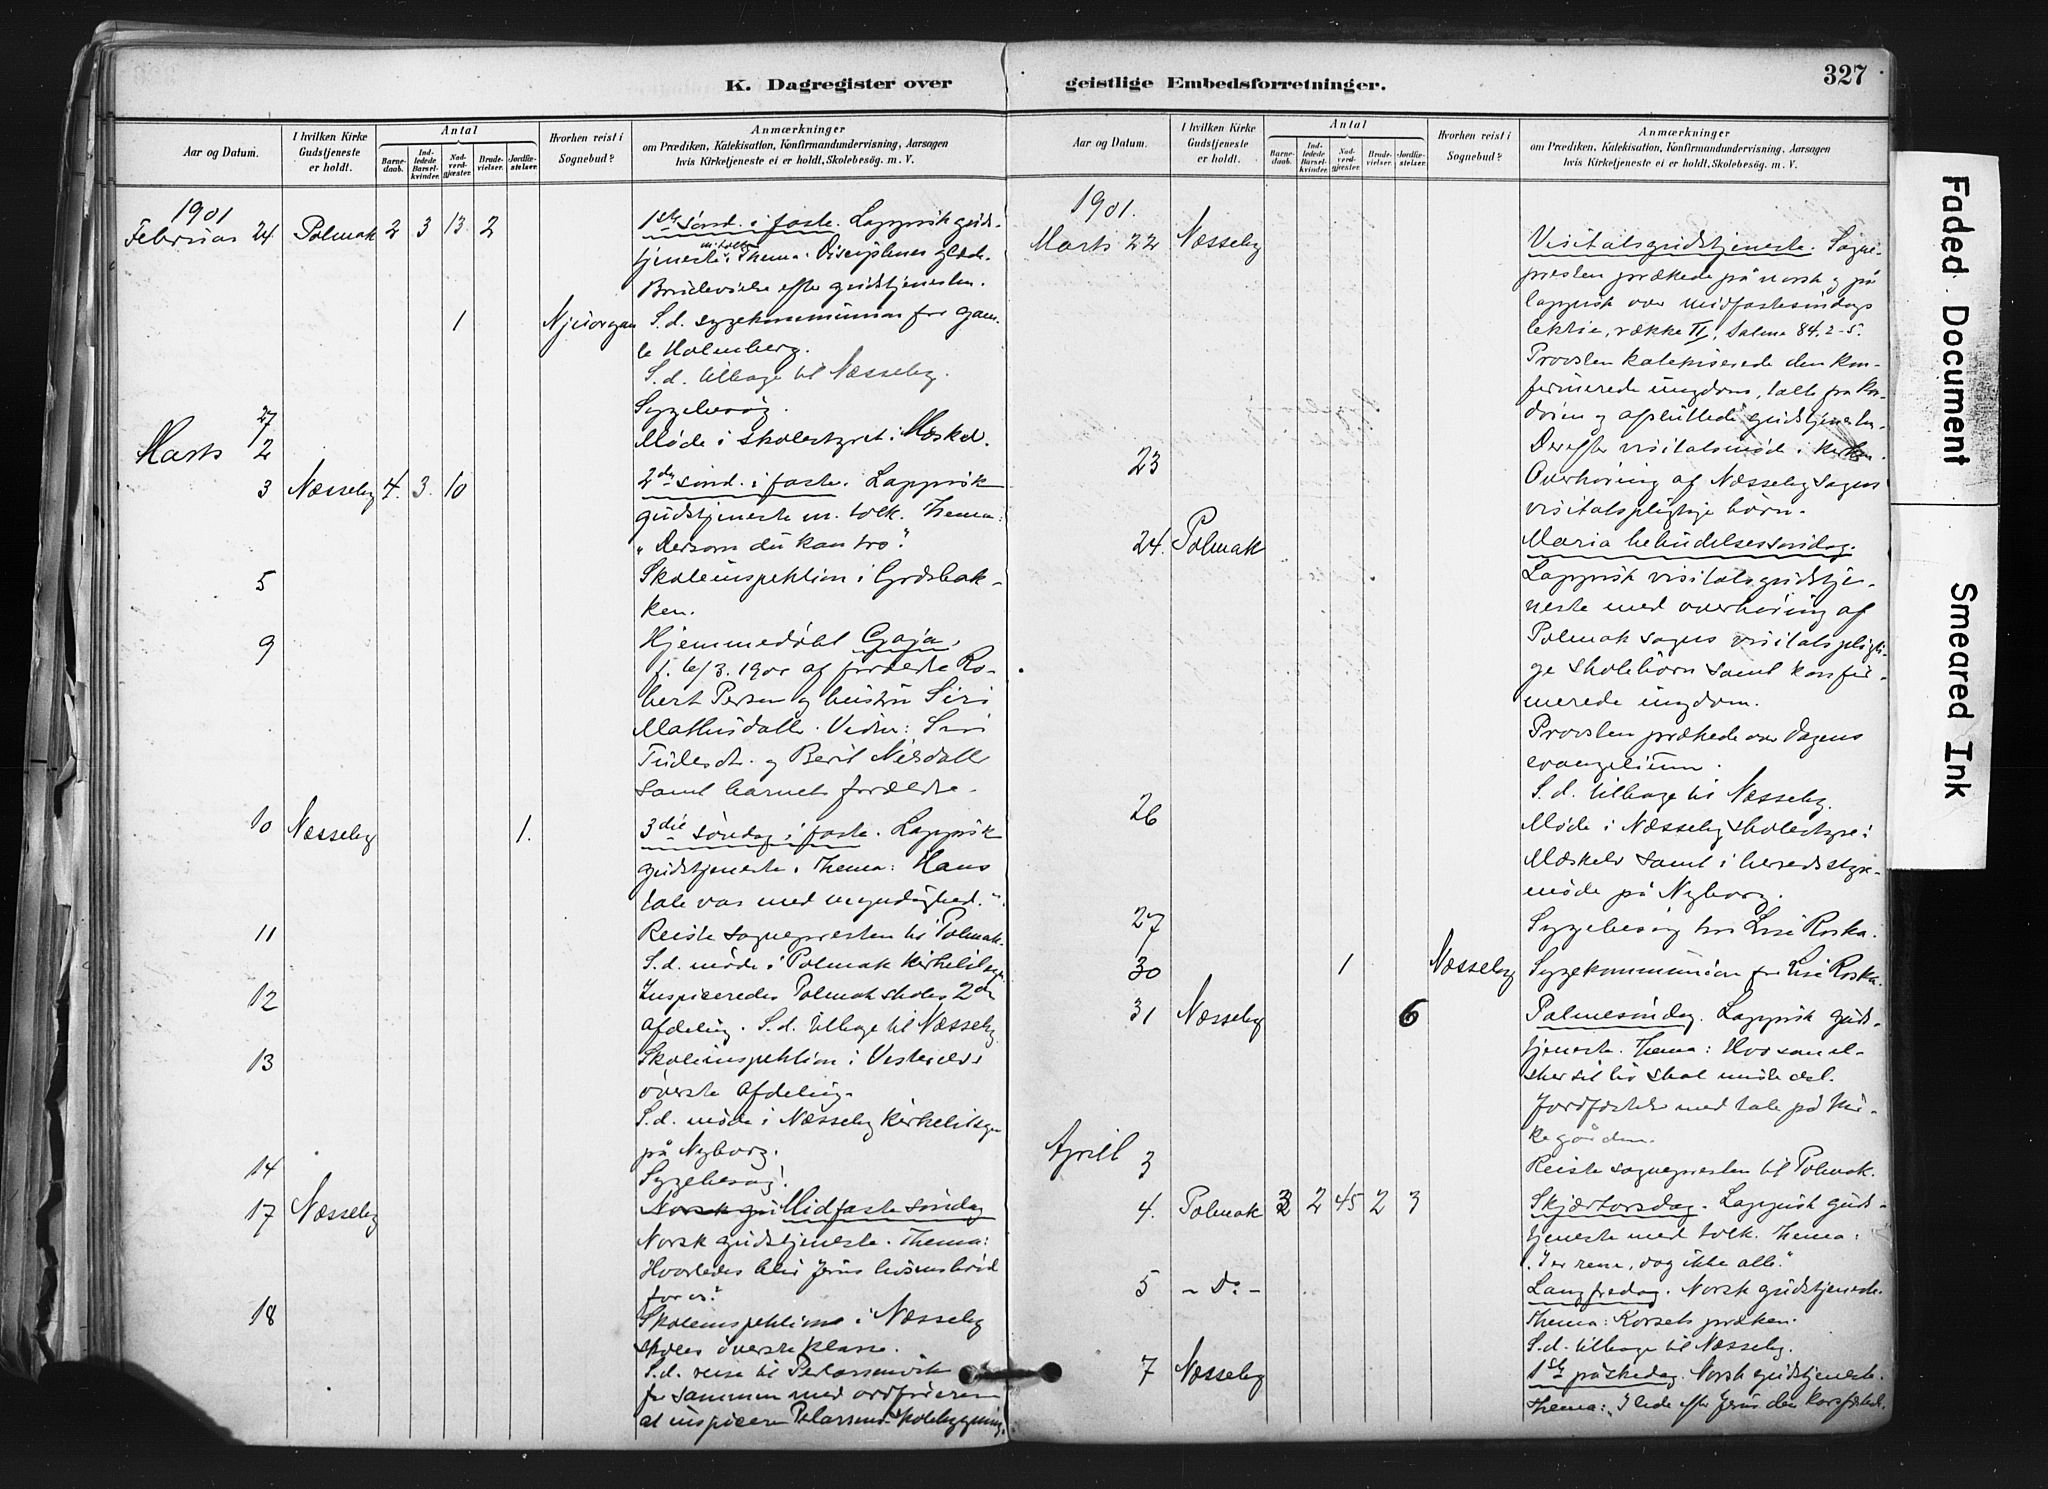 K. Dagregister over
Aar og Datum.
I hvilken Kirke Gudstjeneste er holdt.
Antal
Barnedaab.
Indledede Barselkvinder.
Nadverdgjæster.
Brudevielser.
Jordfæstelser.
Hvorhen reist i Sognebud?
Anmærkninger
om Prædiken, Katekisation, Konfirmandundervisning, Aarsagen
hvis Kirketjeneste ei er holdt, Skolebesög. m. V.
1901
Februar 24 Polmak 2 3 13 2 1ste sönd. i faste. Lappisk guds-
tjeneste m. tolk. Thema: Disciplenes glæde.
Brudevielse efter gudstjenesten.
1 Njuorgam S.d. sygekommunion for gam-
le Holmberg.
S.d. tilbage til Næsseby.
27 Sygebesög.
Marts 2 Möde i skolestyret i Mæskel.
3 Næsseby 4. 3. 10 2den sönd. i faste. Lappisk
gudstjeneste m. tolk. Thema:
"Dersom du kan tro."
5 Skoleinspektion i Grdsbak-
ken.
9 Hjemmedöbt Gaja,
f. 6/3. 1900 af forældre Ro-
bert Persen og hustru Siri
Mathisdatter. Vidner: Siri
og Berit Nilsdatter
samt barnets forældre.
10 Næsseby 1. 3die söndag i faste. Lappisk
gudstjeneste. Thema: Hans
tale var med myndighed."
11 Reiste sognepresten til Polmak.
S.d. möde i Polmak kirketilsyn
12 Inspiceredes Polmak skoles 2den
afdeling. S.d. tilbage til Næsseby
13 Skoleinspektion i Vesterelvs
överste afdeling.
S.d. möde i Næsseby kirketilsyn
på Nyborg.
14 Sygebesög.
17 Næsseby Norsk gu Midfaste söndag
Norsk gudstjeneste. Thema:
Hvorledes blir Jesus livsens bröd
for os?
18 Skoleinspektion i Næsseby
skoles överste klasse.
S.d. reise til Perlarsenvik
for sammen med ordföreren
at inspicere Pelarsenv. skolebygning.
geistlige Embedsforretninger.
327
Aar og Datum.
I hvilken Kirke Gudstjeneste er holdt.
Antal
Barnedaab.
Indledede Barselkvinder.
Nadverdgjæster.
Brudevielser.
Jordfæstelser.
Hvorhen reist i Sognebud?
Anmærkninger
om Prædiken, Katekisation, Konfirmandundervisning, Aarsagen
hvis Kirketjeneste ei er holdt, Skolebesög. m. V.
1901.
Marts 22 Næsseby Visitatsgudstjeneste. Sogne-
presten prækede på norsk og på
lappisk over midfastesöndags
lektie, række II, Salme 84, 2-5.
Provsten katekiserede den kon-
firmerede ungdom, talte fra kor-
dören og afsluttede gudstjenesten.
Derefter visitatsmöde i kirken.
23 Overhöring af Næsseby sogns
visitatspligtige börn.
24. Polmak Maria bebudelsessöndag.
Lappisk visitatsgudstje-
neste med overhöring af
Polmak sogns visitatspligti-
ge skolebörn samt konfir-
merede ungdom.
Provsten prækede over dagens
evangelium.
S.d. tilbage til Næsseby.
26 Möde i Næsseby skolestyre i
Mæskelv samt i herredsstyre-
möde på Nyborg.
27 Sygebesög hos Lisa Roska.
30 1 Næsseby Sygekommunion for Lisa Roska.
31 Næsseby 6 Palmesöndag. Lappisk guds-
tjeneste. Thema: Hvo som el-
sker sit liv skal miste det.
Jordfæstelse med tale på kir-
kegården.
April 3 Reiste sognepresten til Polmak.
4. Polmak 3 2 45 2 3 Skjærtorsdag. Lappisk guds-
tjeneste med tolk. Thema:
"I er rene, dog ikke alle."
5 - Do - Langfredag. Norsk gudstjeneste.
Thema: Korsets præken.
S.d. tilbage til Næsseby.
7 Næsseby 1ste påskedag. Norsk gudstjeneste.
Thema: "I lede efter Jesus den korsfæstede.
Faded Document
Smeared Ink